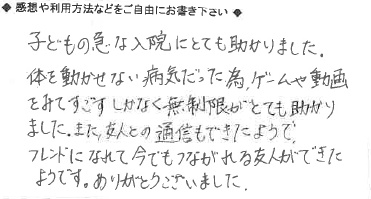 ◆ 感想や利用方法などをご自由にお書き下さい ◆
子どもの急な入院にとても助かりました。
体を動かせない病気だった為、ゲームや動画
をみてすごすしかなく無制限がとても助かり
ました。また、友人との通信もできたようで、
フレンドになれて今でもつながれる友人ができた
ようです。ありがとうございました。